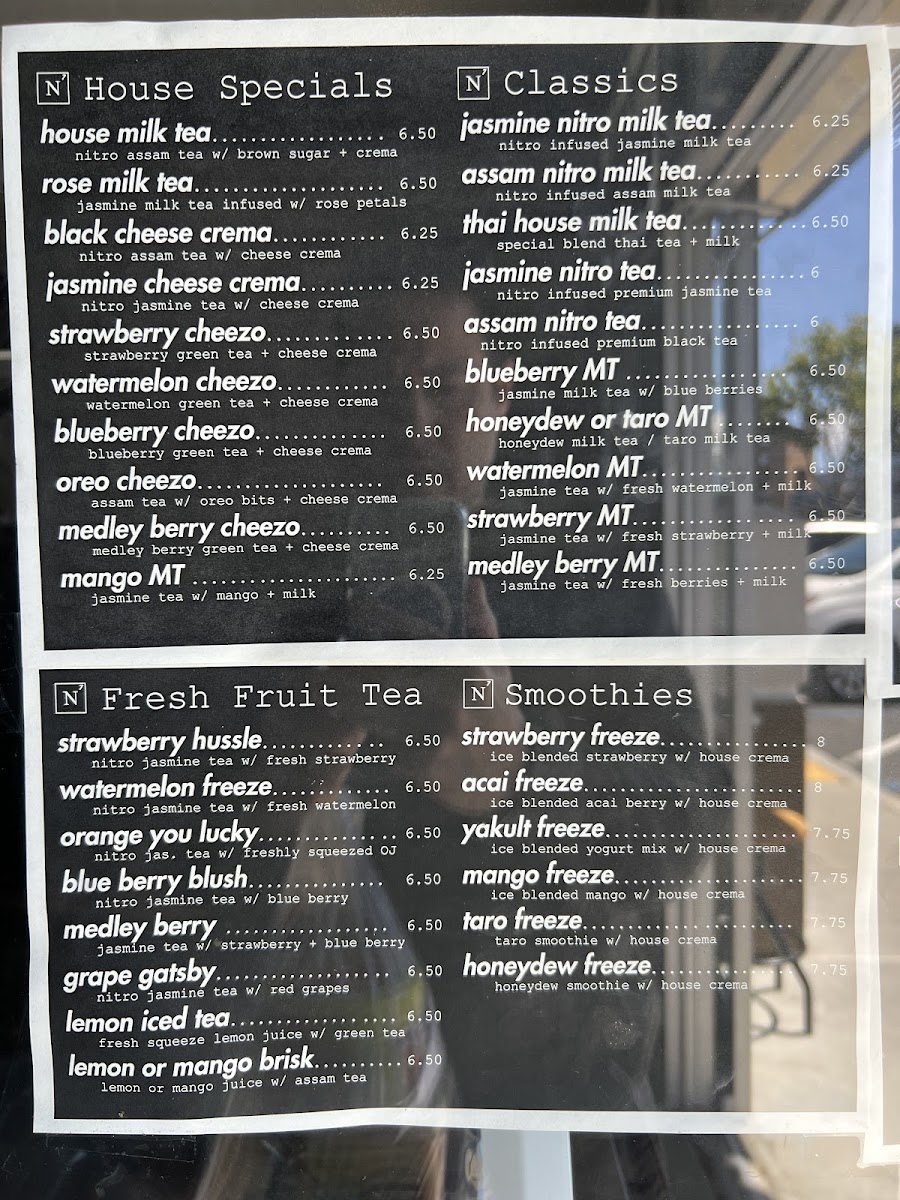 N' House Specials
house milk tea.................. 6.50
nitro assam tea w/ brown sugar + crema
rose milk tea.................... 6.50
jasmine milk tea infused w/ rose petals
black cheese crema............ 6.25
nitro assam tea w/ cheese crema
jasmine cheese crema.......... 6.25
nitro jasmine tea w/ cheese crema
strawberry cheezo.............. 6.50
strawberry green tea + cheese crema
watermelon cheezo............ 6.50
watermelon green tea + cheese crema
blueberry cheezo.............. 6.50
blueberry green tea + cheese crema
oreo cheezo.................... 6.50
assam tea w/ oreo bits + cheese crema
medley berry cheezo.......... 6.50
medley berry green tea + cheese crema
mango MT ...................... 6.25
jasmine tea w/ mango + milk
N' Classics
jasmine nitro milk tea......... 6.25
nitro infused jasmine milk tea
assam nitro milk tea........... 6.25
nitro infused assam milk tea
thai house milk tea.............6.50
special blend thai tea + milk
jasmine nitro tea............... 6
nitro infused premium jasmine tea
assam nitro tea................. 6
nitro infused premium black tea
blueberry MT .................. 6.50
jasmine milk tea w/ blue berries
honeydew or taro MT ......... 6.50
honeydew milk tea / taro milk tea
watermelon MT................. 6.50
jasmine tea w/ fresh watermelon + milk
strawberry MT.................. 6.50
jasmine tea w/ fresh strawberry + milk
medley berry MT............... 6.50
jasmine tea w/ fresh berries + milk
N' Fresh Fruit Tea
strawberry hussle.............. 6.50
nitro jasmine tea w/ fresh strawberry
watermelon freeze............. 6.50
nitro jasmine tea w/ fresh watermelon
orange you lucky............... 6.50
nitro jas. tea w/ freshly squeezed OJ
blue berry blush............... 6.50
nitro jasmine tea w/ blue berry
medley berry .................. 6.50
jasmine tea w/ strawberry + blue berry
grape gatsby................... 6.50
nitro jasmine tea w/ red grapes
lemon iced tea..................6.50
fresh squeeze lemon juice w/ green tea
lemon or mango brisk..........6.50
lemon or mango juice w/ assam tea
N' Smoothies
strawberry freeze................ 8
ice blended strawberry w/ house crema
acai freeze........................ 8
ice blended acai berry w/ house crema
yakult freeze..................... 7.75
ice blended yogurt mix w/ house crema
mango freeze.................... 7.75
ice blended mango w/ house crema
taro freeze....................... 7.75
taro smoothie w/ house crema
honeydew freeze................ 7.75
honeydew smoothie w/ house crema